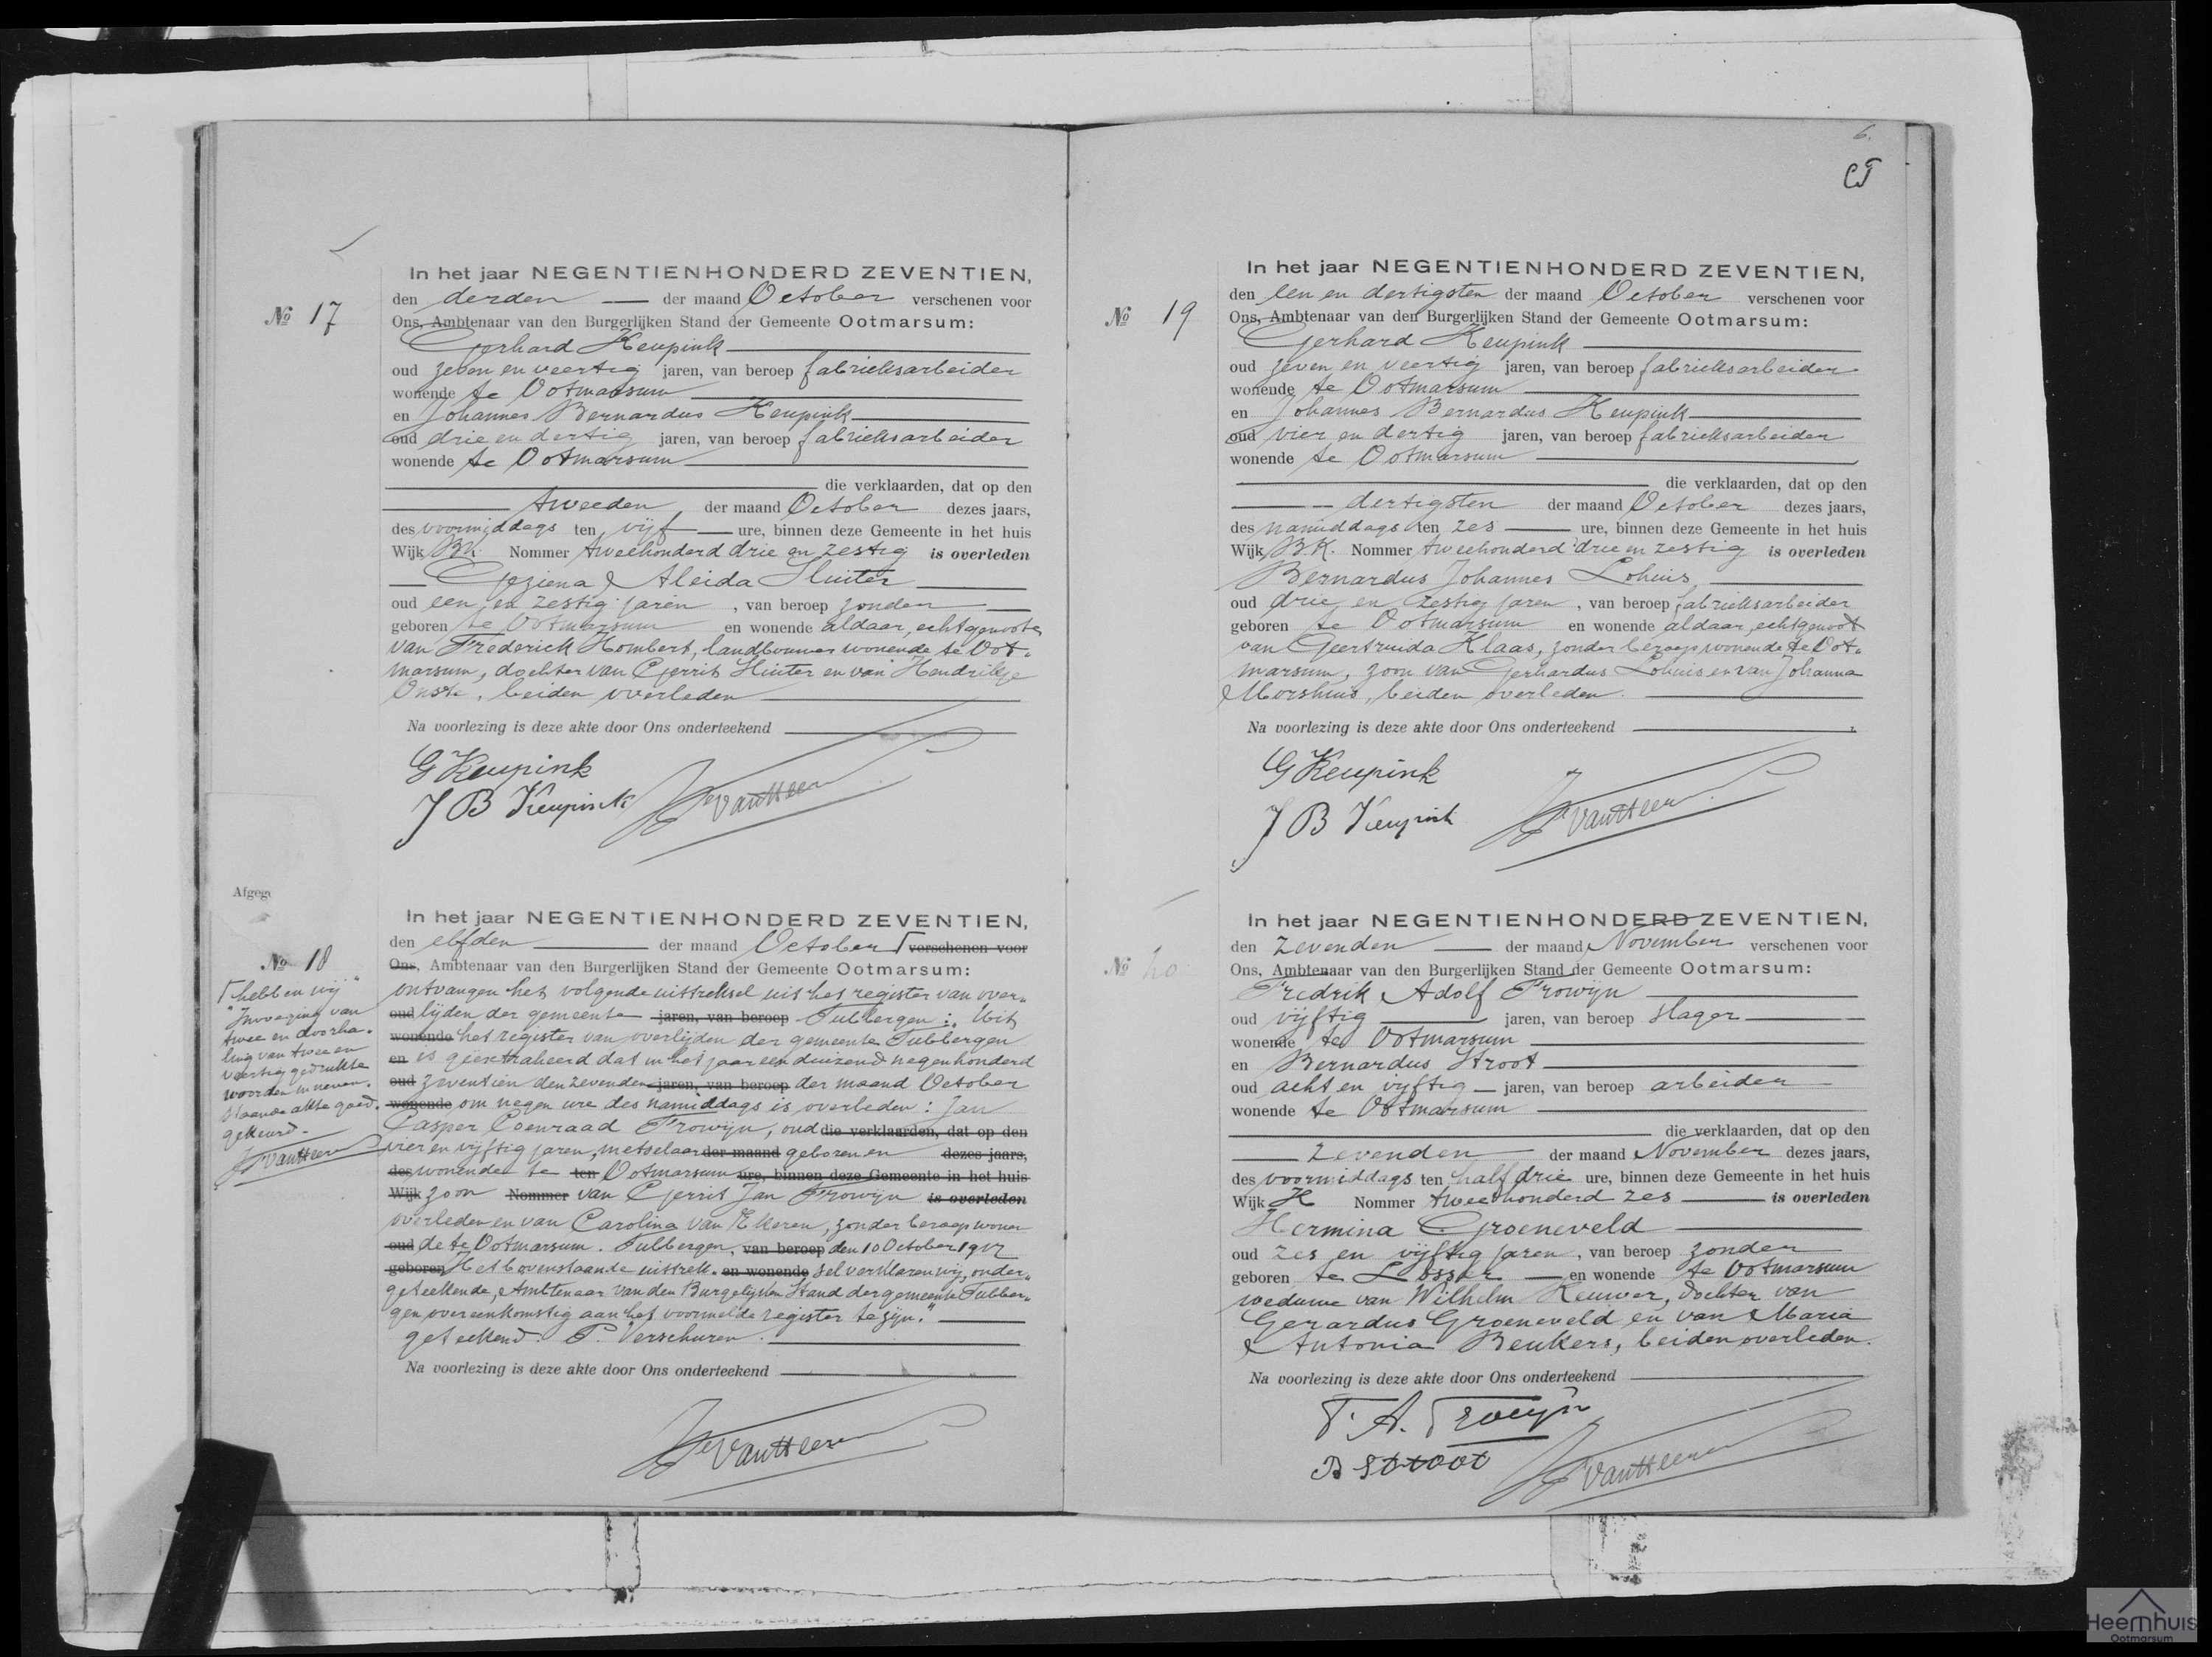 In het jaar NEGENTIENHONDERD ZEVENTIEN,
№ 17
den derden der maand October verschenen voor
Ons, Ambtenaar van den Burgerlijken Stand der Gemeente Ootmarsum:
Gerhard Keupink
oud zeven en veertig jaren, van beroep fabrieksarbeider
wonende te Ootmarsum
en Johannes Bernardus Keupink
oud drie en dertig jaren, van beroep fabrieksarbeider
wonende te Ootmarsum
die verklaarden, dat op den
tweeden der maand October dezes jaars,
des voormiddags ten vijf ure, binnen deze Gemeente in het huis
Wijk BK Nommer tweehonderd drie en zestig is overleden
Geziena Aleida Sluiter
oud een en zestig jaren, van beroep zonder
geboren te Ootmarsum en wonende aldaar, echtgenoote
van Frederick Hombert, landbouwer wonende te Oot-
marsum, dochter van Gerrit Sluiter en van Hendrikje
beiden overleden
Na voorlezing is deze akte door Ons onderteekend
G Keupink
J B Keupink
Afgege
In het jaar NEGENTIENHONDERD ZEVENTIEN,
№ 18
den elfden der maand October verschenen voor
Ons, Ambtenaar van den Burgerlijken Stand der Gemeente Ootmarsum:
ontvangen het volgende uittreksel uit het register van over-
oud lijden der gemeente jaren, van beroep Tubbergen: "Uit
wonende het register van overlijden der gemeente Tubbergen
en is geextraheerd dat in het jaar een duizend negenhonderd
oud zeventien den zevenden jaren, van beroep der maand October
wonende om negen ure des namiddags is overleden: Jan
Casper Coenraad Frowijn, oud die verklaarden, dat op den
vier en vijftig jaren, metselaar der maand geboren en dezes jaars,
des wonende te ten Ootmarsum ure, binnen deze Gemeente in het huis
Wijk zoon Nommer van Gerrit Jan Frowijn is overleden
overleden en van Carolina van Ekeren, zonder beroep wonen
oud de te Ootmarsum. Tubbergen, van beroep den 10 October 1917
geboren Het bovenstaande uittrek- en wonende sel verklaren wij, onder-
geteekende, Ambtenaar van den Burgelijken Stand der gemeente Tubber-
gen overeenkomstig aan het voormelde register te zijn."
geteekend: P. Verschuren.
Na voorlezing is deze akte door Ons onderteekend
"hebben wij"
Invoeging van
twee en doorha-
ling van twee en
veertig gedrukte
woorden in neven-
staande akte goed-
gekeurd.
6.
In het jaar NEGENTIENHONDERD ZEVENTIEN,
№ 19
den een en dertigsten der maand October verschenen voor
Ons, Ambtenaar van den Burgerlijken Stand der Gemeente Ootmarsum:
Gerhard Keupink
oud zeven en veertig jaren, van beroep fabrieksarbeider
wonende te Ootmarsum
en Johannes Bernardus Keupink
oud vier en dertig jaren, van beroep fabrieksarbeider
wonende te Ootmarsum
die verklaarden, dat op den
dertigsten der maand October dezes jaars,
des namiddags ten zes ure, binnen deze Gemeente in het huis
Wijk B.K. Nommer tweehonderd drie en zestig is overleden
Bernardus Johannes Lohuis
oud drie en zestig jaren, van beroep fabrieksarbeider
geboren te Ootmarsum en wonende aldaar, echtgenoot
van Geertruida Klaas, zonder beroep wonende te Oot-
marsum, zoon van Gerhardus Lohuis en van Johanna
Morshuis, beiden overleden.
Na voorlezing is deze akte door Ons onderteekend
G Keupink
J B Keupink
In het jaar NEGENTIENHONDERD ZEVENTIEN,
№ 20
den zevenden der maand November verschenen voor
Ons, Ambtenaar van den Burgerlijken Stand der Gemeente Ootmarsum:
Fredrik Adolf Frowijn
oud vijftig jaren, van beroep slager
wonende te Ootmarsum
en Bernardus Stroot
oud acht en vijftig jaren, van beroep arbeider
wonende te Ootmarsum
die verklaarden, dat op den
zevenden der maand November dezes jaars,
des voormiddags ten half drie ure, binnen deze Gemeente in het huis
Wijk H Nommer tweehonderd zes is overleden
Hermina Groeneveld
oud zes en vijftig jaren, van beroep zonder
geboren te Losser en wonende te Ootmarsum
weduwe van Wilhelm Keuwer, dochter van
Gerardus Groeneveld en van Maria
Antonia Beukers, beiden overleden.
Na voorlezing is deze akte door Ons onderteekend
F. A. Frowijn
B Stroot
Heemhuis
Ootmarsum